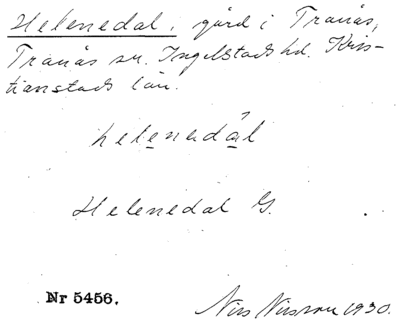 Helenedal, gård i Tranås,
Tranås sn. Ingelstads hd. Kris-
tianstads län.
helenedál
Helenedal G.
Nr 5456.
Nils Nilsson 1930.